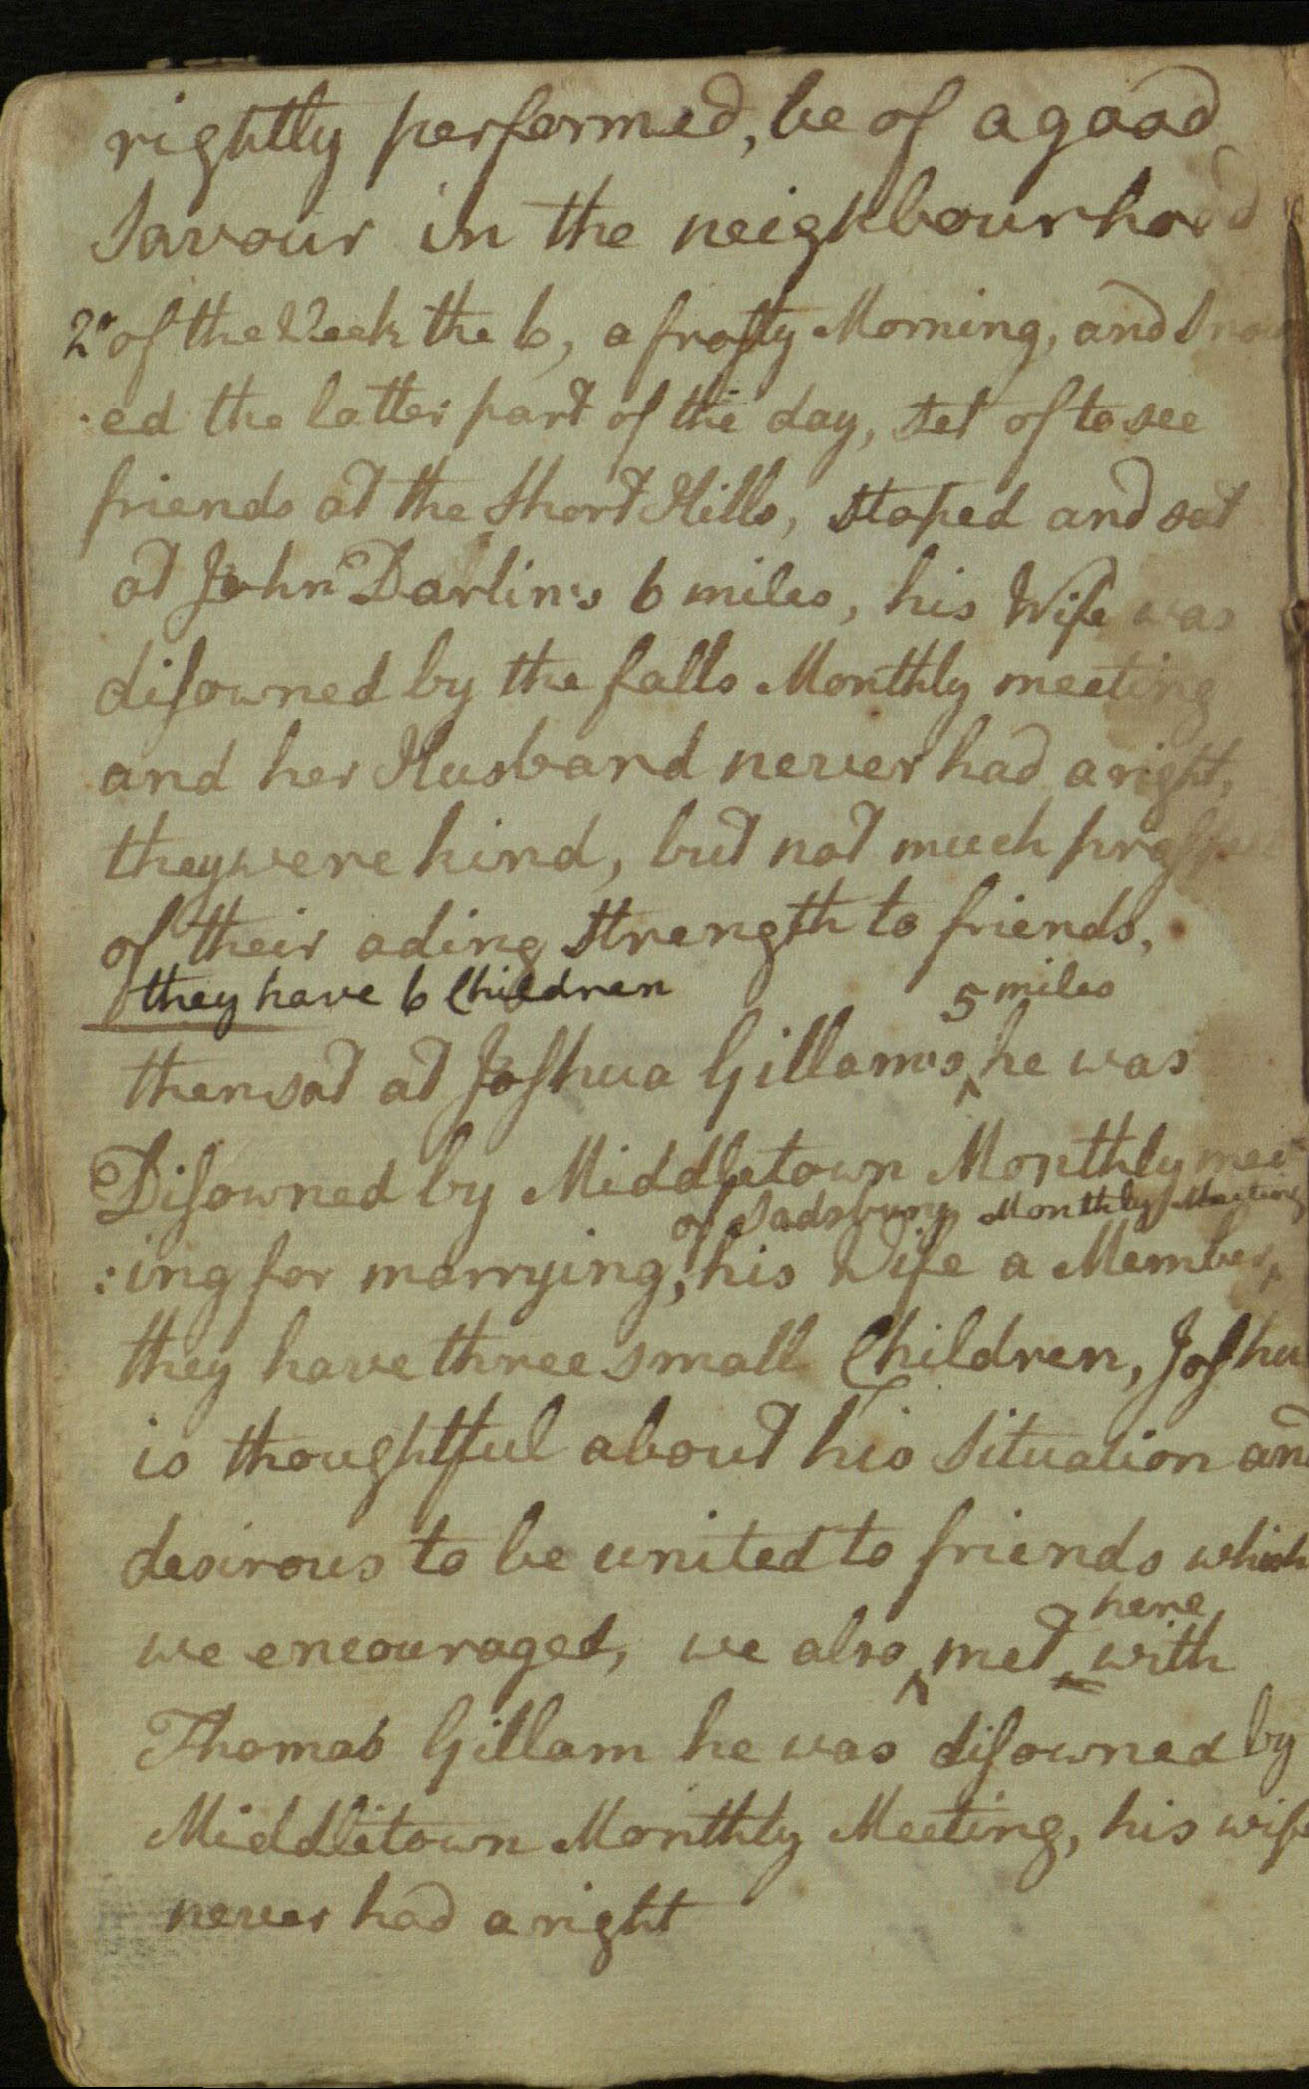 rightly performed, be of a good
Savour in the neighbourhood
2 of the Week the 6, a frosty Morning, and Snow
:ed the latter part of the day, set of to see
friends at the Short Hills, stoped and sat
at John Darlin's 6 miles, his Wife was
disowned by the falls Monthly meeting
and her Husband never had a right,
they were kind, but not much
of their ading strength to friends,
they have 6 Children
5 miles
then sat at Joshua Gillam's ^ he was
Disowned by Middletown Monthly meet
of Sadsbury Monthly Meeting
:ing for marrying, his Wife a Member ^
they have three small Children, Joshua
is thoughtful about his Situation and
desirous to be united to friends which
here
we encouraged, we also ^ met ^ with
Thomas Gillam he was disowned by
Middletown Monthly Meeting, his wife
never had a right